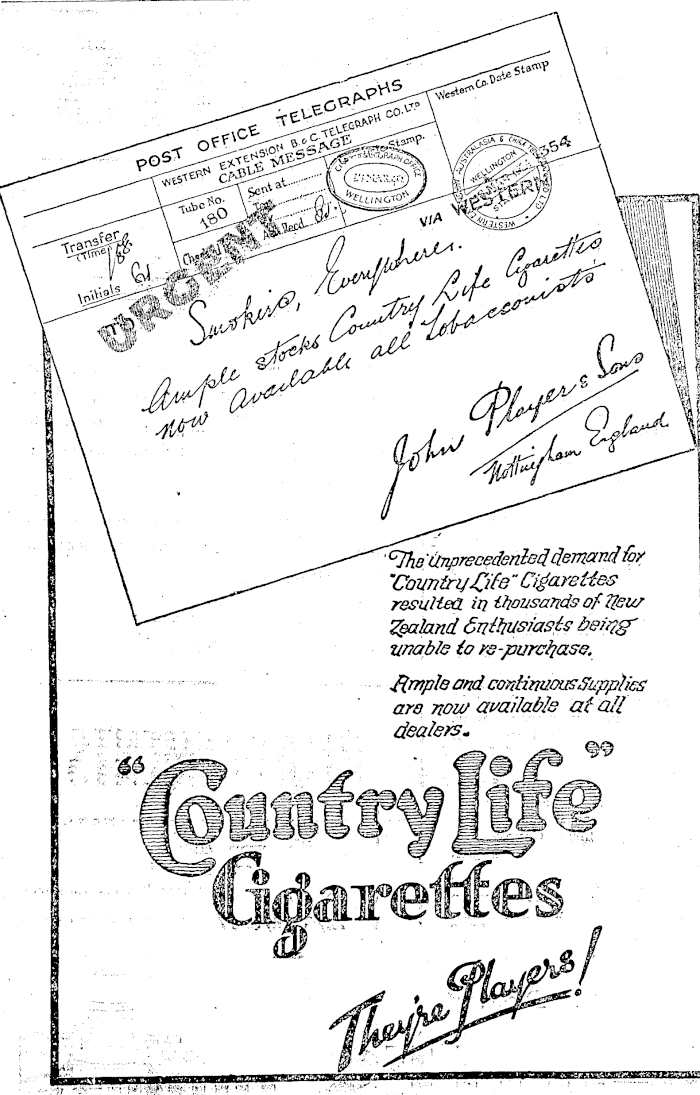 POST OFFICE TELEGRAPHS
WESTERN EXTENSION B & C. TELEGRAPH CO. LTD
CABLE MESSAGE
Western Co. Date Stamp
Transfer
(Time)
Initials
Tube No.
180
Sent at
To
Recd.
Stamp.
TELEGRAPH OFFICE
WELLINGTON
AUSTRALASIA & CHINA
WELLINGTON
WESTERN
354
VIA WESTERN
URGENT
Smokers, Everywhere.
Ample stocks Country Life Cigarettes
now available all tobacconists
John Player & Sons
Nottingham England.
The unprecedented demand for
"Country Life" Cigarettes
resulted in thousands of New
Zealand Enthusiasts being
unable to re-purchase.
Ample and continuous supplies
are now available at all
dealers.
"Country Life"
Cigarettes
They're Players!